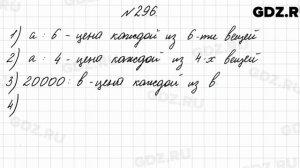 GDZ.RU
№296
1) a : 6 - цена каждой из 6-ти вещей
2) a : 4 - цена каждой из 4-х вещей
3) 20000 : в - цена каждой из в
4)
GDZ.RU